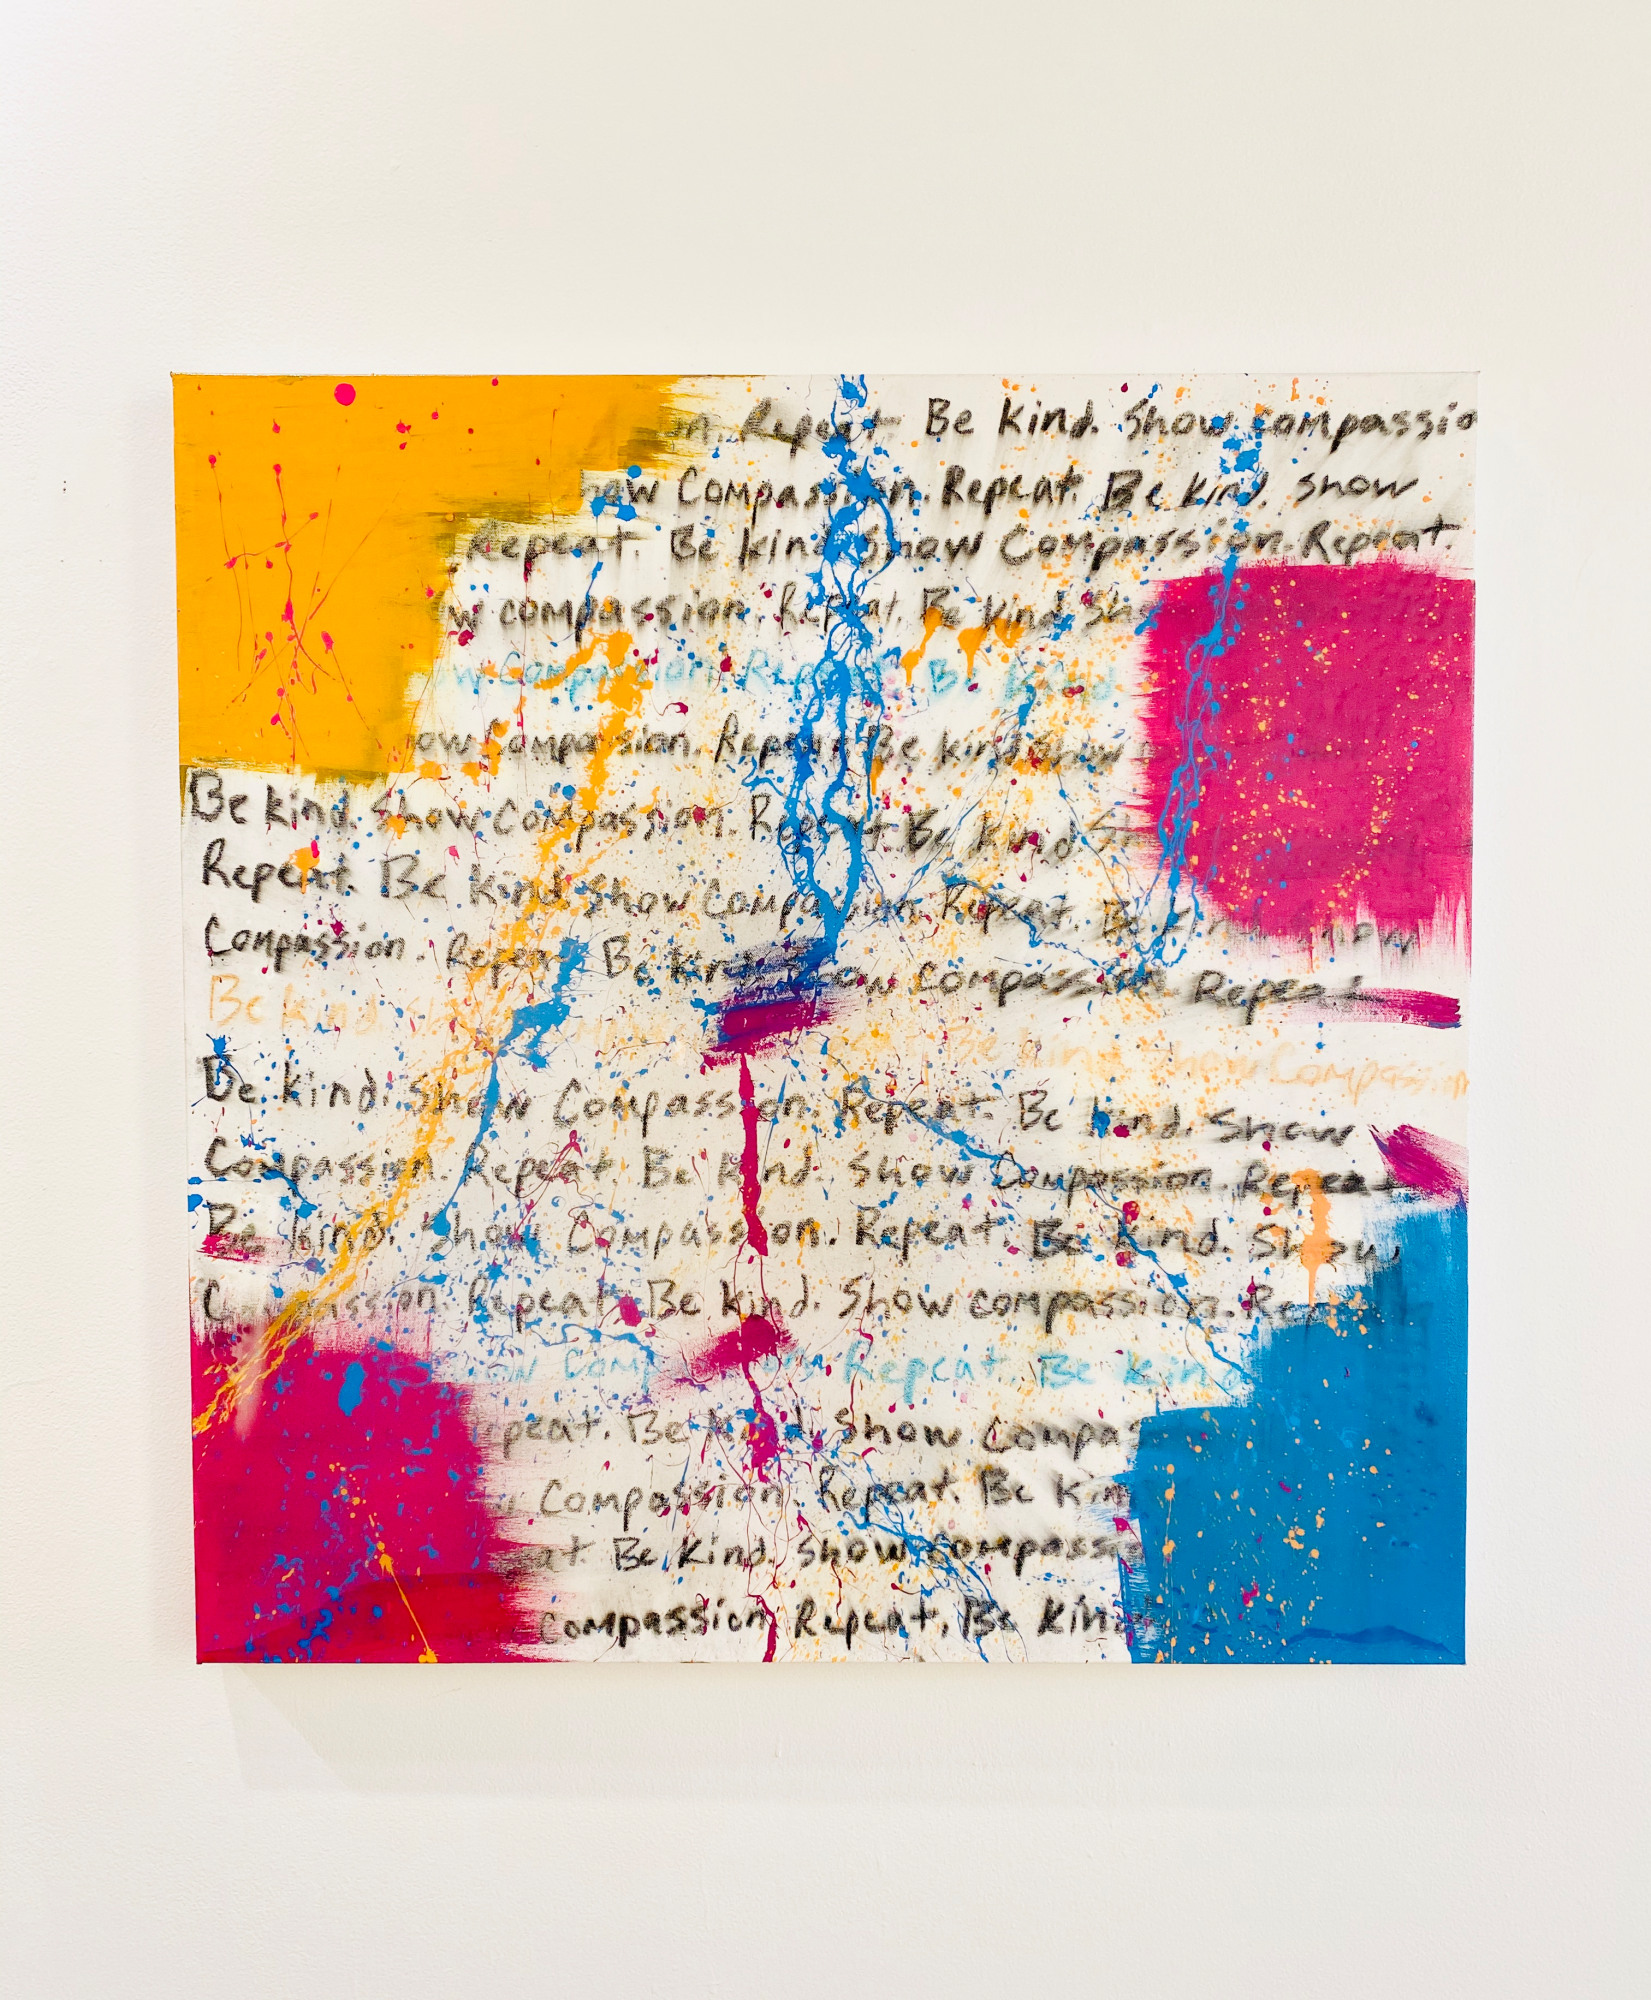 n. Repeat. Be kind. Show compassio
ow Compassion. Repeat. Be kind. show
Repeat. Be kind. Show Compassion. Repeat.
w compassion. Repeat. Be kind. Sho
ow Compassion. Repeat. Be Kind
ow Compassion. Repeat. Be kind. Show
Be kind. Show Compassion. Repeat. Be Kind. Sh
Repeat. Be kind. Show Compassion. Repeat. Be kind. Show
Compassion. Repeat. Be kind. Show compassion. Repeat
Be kind. Be kind. Show Compassion
Be kind. Show Compassion. Repeat. Be kind. Show
Compassion. Repeat. Be kind. Show Compassion. Repeat
Be kind. Show Compassion. Repeat. Be kind. Show
Compassion. Repeat. Be kind. Show compassion. Repeat
ow Compassion. Repeat. Be kind
epeat. Be kind. Show Compas
Compassion. Repeat. Be Kin
at. Be kind. Show compassio
compassion. Repeat. Be kind